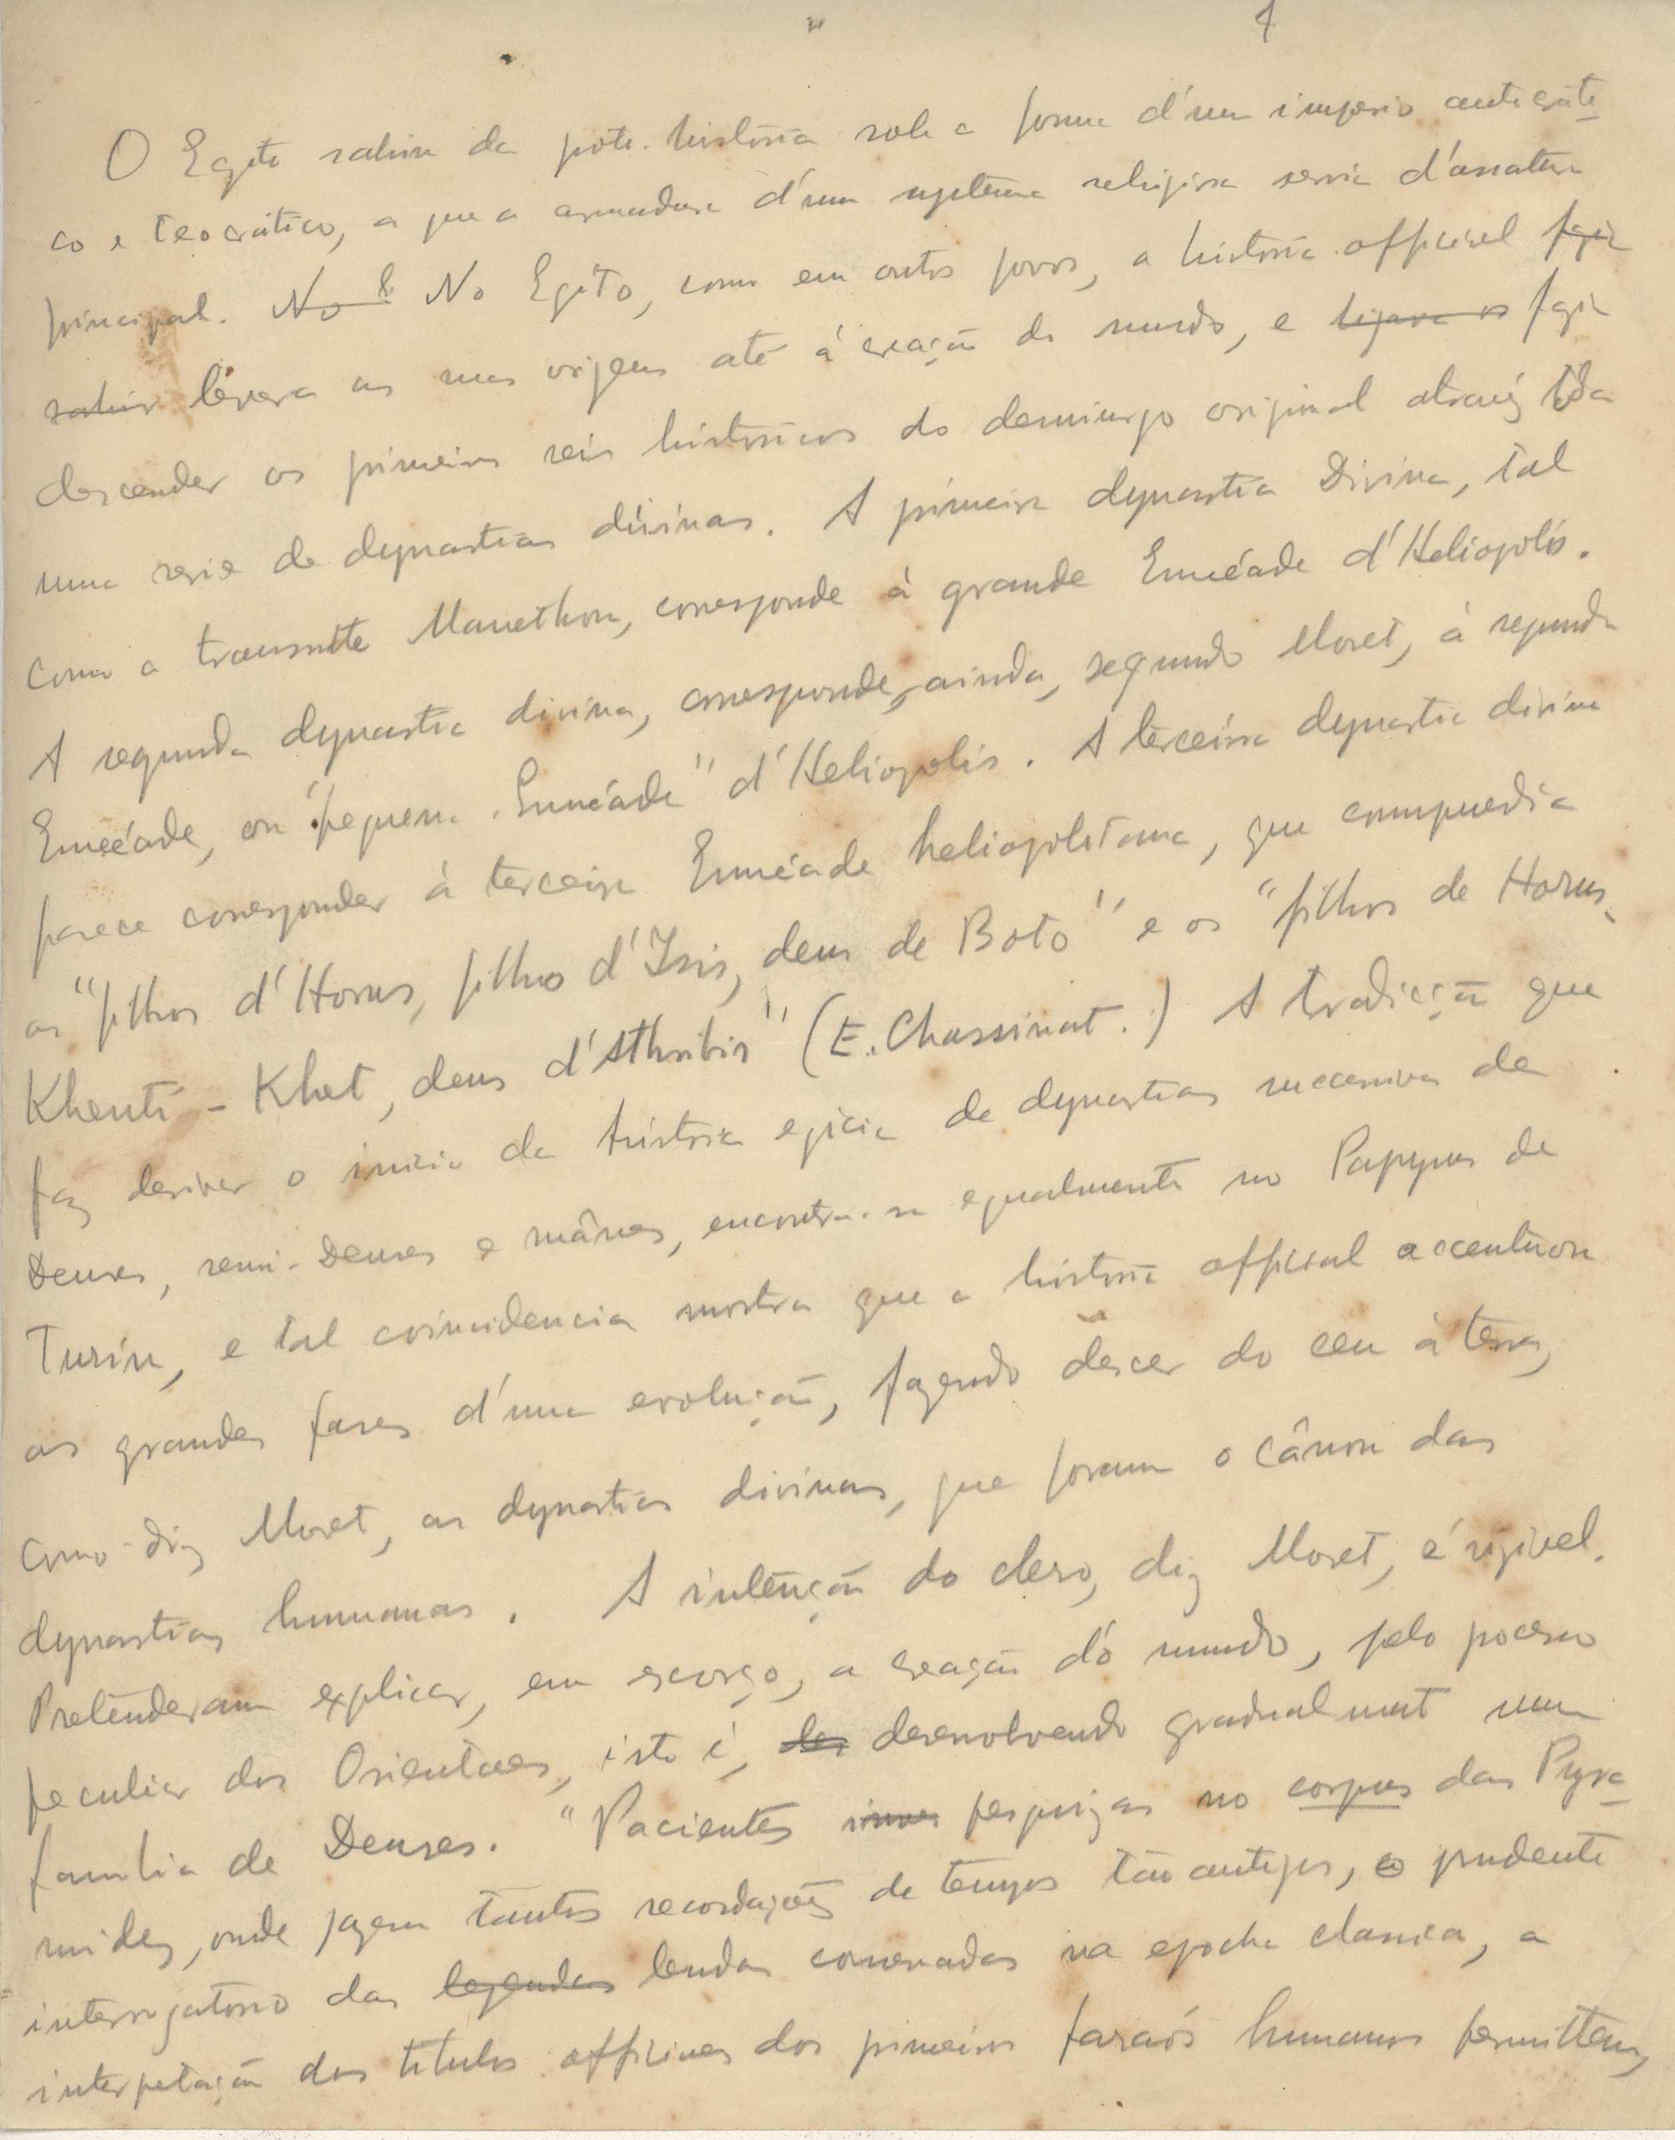 O Egito sahiu da proto-historia sob a forma d'um imperio autocráti-
co e teocrático, a que a armadura d'um systema religioso servia d'ossatura
principal. No E No Egito, como em outros povos, a historia official fazia
sahir levava as suas origens até á creação do mundo, e ligava os fazia
descender os primeiros reis historicos do demiurgo original atravéz da
uma serie de dynastias divinas. A primeira dynastia Divina, tal
como a transmitte Manethon, corresponde à grande Ennéade d'Heliopolis.
A segunda dynastia divina, corresponde, ainda, segundo Moret, à segunda
Ennéade, ou "pequena Ennéade" d'Heliopolis. A terceira dynastia divina
parece corresponder à terceira Ennéade heliopolitana, que comprendia
os "filhos d'Horus, filho d'Isis, deus de Boto" e os "filhos de Horus-
Khenti-Khet, deus d'Athribis" (E. Chassinat.) A tradicção que
faz derivar o inicio da historia egicia de dynastias successivas de
Deuses, semi-Deuses e mânes, encontra-se egualmente no Papyrus de
Turin, e tal coincidencia mostra que a historia official accentuou
as grandes fases d'uma evolução, fazendo descer do ceu à terra,
como diz Moret, as dynastias divinas, que foram o cânon das
dynastias humanas. A intenção do clero, diz Moret, é visivel.
Pretenderam explicar, em escorço, a creação do mundo, pelo processo
peculiar dos Orientaes, isto é, des desenvolvendo gradualmente uma
familia de Deuses. "Pacientes inves pesquizas no corpus das Pyra-
mides, onde jazem tantas recordações de tempos tão antigos, o prudente
interrogatorio das legendas lendas conservadas na epocha classica, a
interpretação dos titulos officiaes dos primeiros faraós humanos permittem,